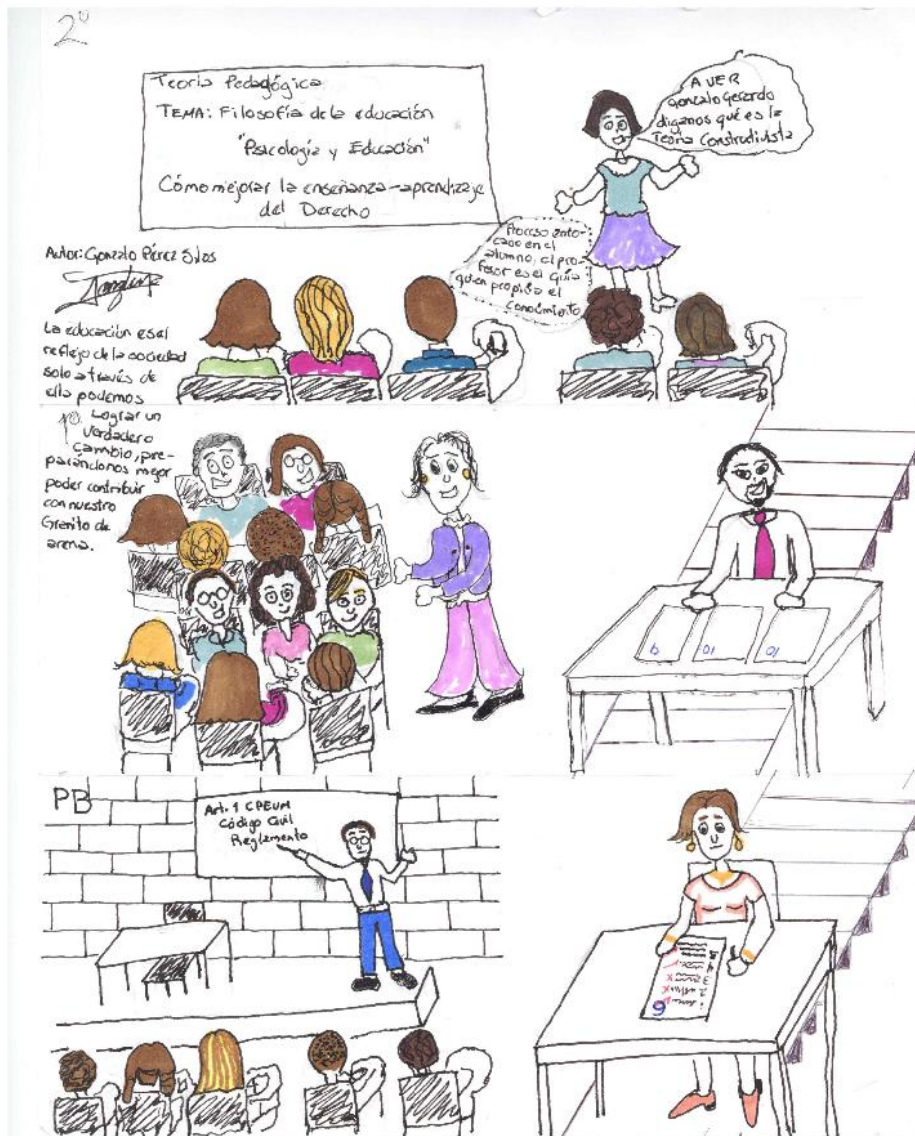 2º
Teoría Pedagógica
TEMA: Filosofía de la educación
"Psicología y Educación"
Cómo mejorar la enseñanza-aprendizaje
del Derecho
A VER
Gonzalo Gerardo
díganos qué es la
Teoría Constructivista
Proceso enfo-
cado en el
alumno, el pro-
fesor es el guía
quien propicia el
conocimiento
Autor: Gonzalo Pérez Silos
La educación es el
reflejo de la sociedad
solo a través de
ella podemos
Lograr un
Verdadero
Cambio, pre-
parándonos mejor
poder contribuir
con nuestro
Granito de
arena.
1º
9
10
10
PB
Art. 1 CPEUM
Código Civil
Reglamento
6